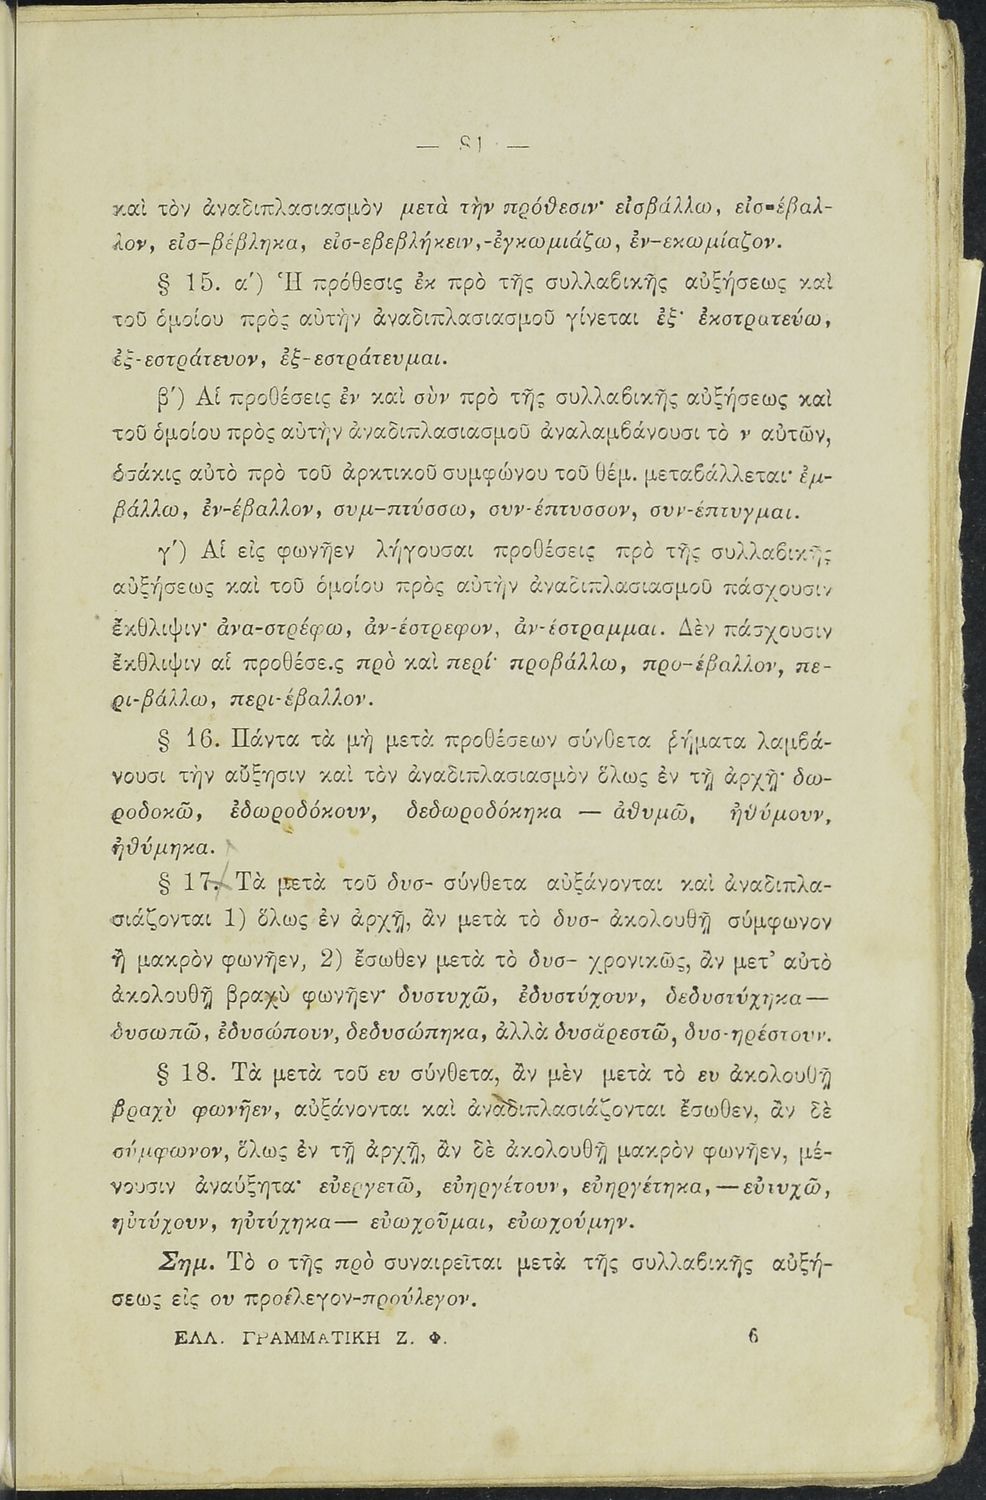 — 81 —
καὶ τὸν ἀναδιπλασιασμὸν μετὰ τὴν πρόθεσιν· εἰσβάλλω, εἰσ-έβαλ-
λον, εἰσ-βέβληκα, εἰσ-εβεβλήκειν,-ἐγκωμιάζω, ἐν-εκωμίαζον.
§ 15. α′) Ἡ πρόθεσις ἐκ πρὸ τῆς συλλαβικῆς αὐξήσεως καὶ
τοῦ ὁμοίου πρὸς αὐτὴν ἀναδιπλασιασμοῦ γίνεται ἐξ· ἐκστρατεύω,
ἐξ-εστράτευον, ἐξ-εστράτευμαι.
β′) Αἱ προθέσεις ἐν καὶ σὺν πρὸ τῆς συλλαβικῆς αὐξήσεως καὶ
τοῦ ὁμοίου πρὸς αὐτὴν ἀναδιπλασιασμοῦ ἀναλαμβάνουσι τὸ ν αὐτῶν,
ὁσάκις αὐτὸ πρὸ τοῦ ἀρκτικοῦ συμφώνου τοῦ θέμ. μεταβάλλεται· ἐμ-
βάλλω, ἐν-έβαλλον, συμ-πτύσσω, συν-έπτυσσον, συν-έπτυγμαι.
γ′) Αἱ εἰς φωνῆεν λήγουσαι προθέσεις πρὸ τῆς συλλαβικῆς
αὐξήσεως καὶ τοῦ ὁμοίου πρὸς αὐτὴν ἀναδιπλασιασμοῦ πάσχουσιν
ἔκθλιψιν· ἀνα-στρέφω, ἀν-έστρεφον, ἀν-έστραμμαι. Δὲν πάσχουσιν
ἔκθλιψιν αἱ προθέσε.ς πρὸ καὶ περί· προβάλλω, προ-έβαλλον, πε-
ρι-βάλλω, περι-έβαλλον.
§ 16. Πάντα τὰ μὴ μετὰ προθέσεων σύνθετα ῥήματα λαμβά-
νουσι τὴν αὔξησιν καὶ τὸν ἀναδιπλασιασμὸν ὅλως ἐν τῇ ἀρχῇ· δω-
ροδοκῶ, ἐδωροδόκουν, δεδωροδόκηκα — ἀθυμῶ, ἠθύμουν,
ἠθύμηκα.
§ 17. Τὰ μετὰ τοῦ δυσ- σύνθετα αὐξάνονται καὶ ἀναδιπλα-
σιάζονται 1) ὅλως ἐν ἀρχῇ, ἂν μετὰ τὸ δυσ- ἀκολουθῇ σύμφωνον
ἢ μακρὸν φωνῆεν, 2) ἔσωθεν μετὰ τὸ δυσ- χρονικῶς, ἂν μετ’ αὐτὸ
ἀκολουθῇ βραχὺ φωνῆεν· δυστυχῶ, ἐδυστύχουν, δεδυστύχηκα—
δυσωπῶ, ἐδυσώπουν, δεδυσώπηκα, ἀλλὰ δυσᾰρεστῶ, δυσ-ηρέστουν.
§ 18. Τὰ μετὰ τοῦ ευ σύνθετα, ἂν μὲν μετὰ τὸ ευ ἀκολουθῇ
βραχὺ φωνῆεν, αὐξάνονται καὶ ἀναδιπλασιάζονται ἔσωθεν, ἂν δὲ
σύμφωνον, ὅλως ἐν τῇ ἀρχῇ, ἂν δὲ ἀκολουθῇ μακρὸν φωνῆεν, μέ-
νουσιν ἀναύξητα· εὐεργετῶ, εὐηργέτουν, εὐηργέτηκα,—εὐτυχῶ,
ηὐτύχουν, ηὐτύχηκα— εὐωχοῦμαι, εὐωχούμην.
Σημ. Τὸ ο τῆς πρὸ συναιρεῖται μετὰ τῆς συλλαβικῆς αὐξή-
σεως εἰς ου προέλεγον-προύλεγον.
ΕΛΛ. ΓΡΑΜΜΑΤΙΚΗ Ζ. Φ. 6